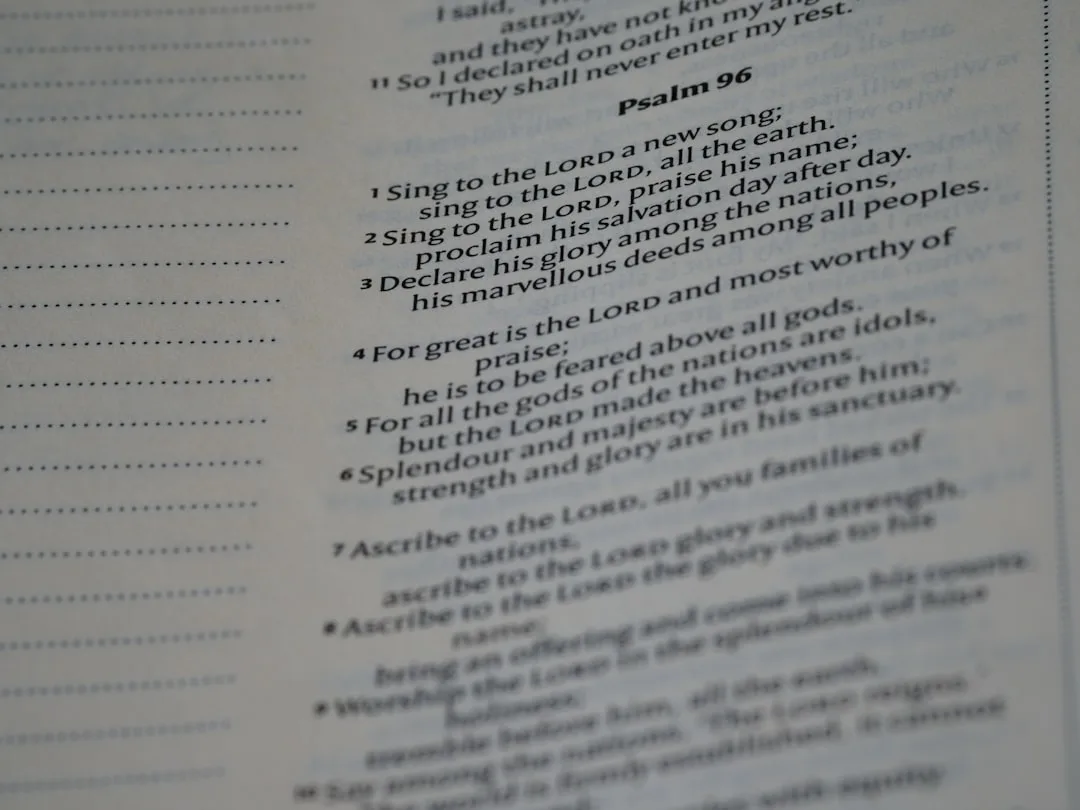 I said,
astray,
and they have not
11 So I declared on oath in my
“They shall never enter my rest.
Psalm 96
1 Sing to the LORD a new song;
sing to the LORD, all the earth.
2 Sing to the LORD, praise his name;
proclaim his salvation day after day.
3 Declare his glory among the nations,
his marvellous deeds among all peoples.
4 For great is the LORD and most worthy of
praise;
he is to be feared above all gods.
5 For all the gods of the nations are idols,
but the LORD made the heavens.
6 Splendour and majesty are before him;
strength and glory are in his sanctuary.
7 Ascribe to the LORD, all you families of
nations,
ascribe to the LORD glory and strength.
8 Ascribe to the LORD the glory due to his
name;
bring an offering and come into his courts.
9 Worship the LORD in the splendour of his
holiness;
tremble before him, all the earth.
10 Say among the nations, ‘The LORD reigns.’
The world is firmly established, it cannot
with equity.